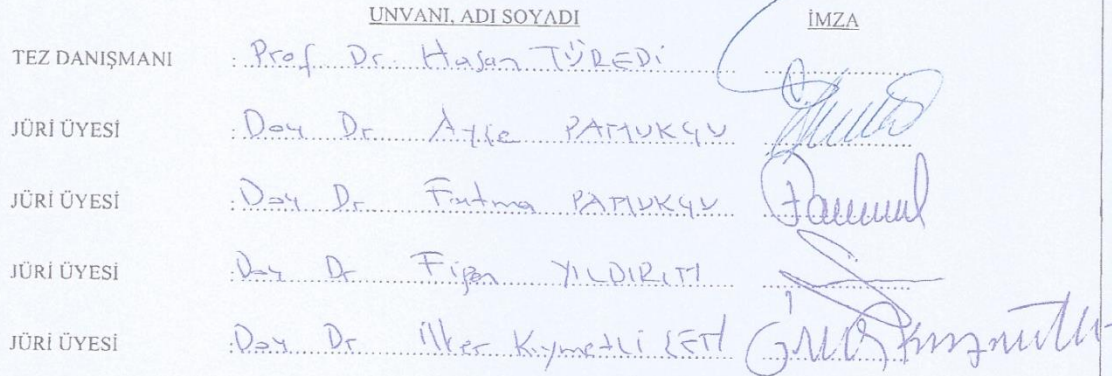 UNVANI, ADI SOYADI İMZA
TEZ DANIŞMANI : Prof. Dr. Hasan TÜREDİ
JÜRİ ÜYESİ : Doç. Dr. Ayşe PAMUKÇU
JÜRİ ÜYESİ : Doç. Dr. Fatma PAMUKÇU
JÜRİ ÜYESİ : Doç. Dr. Figen YILDIRIM
JÜRİ ÜYESİ : Doç. Dr. İlker Kıymetli ŞEN